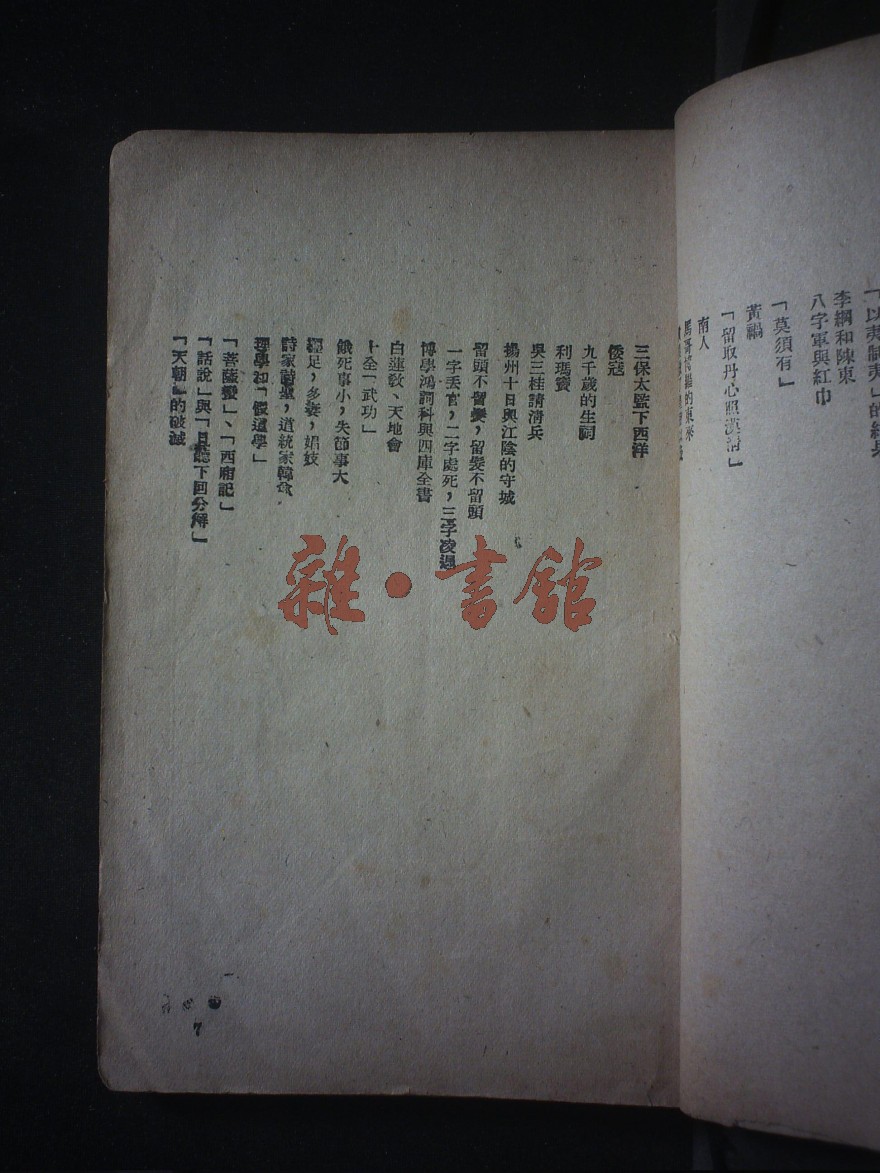 「以夷制夷」的結果
李綱和陳東
八字軍與紅巾
「莫須有」
黃禍
「留取丹心照漢靑」
南人
的東來
三保太監下西洋
倭寇
九千歲的生祠
利瑪竇
吳三桂請淸兵
揚州十日與江陰的守城
留頭不留髮，留髮不留頭
一字丟官，二字處死，三字凌遲
博學鴻詞科與四庫全書
白蓮敎、天地會
十全「武功」
餓死事小，失節事大
纏足，多妾，娼妓
詩家詩聖，道統家韓愈
理學和「假道學」
「菩薩蠻」、「西廂記」
「話說」與「且聽下回分解」
「天朝」的破滅
7
雜·書館